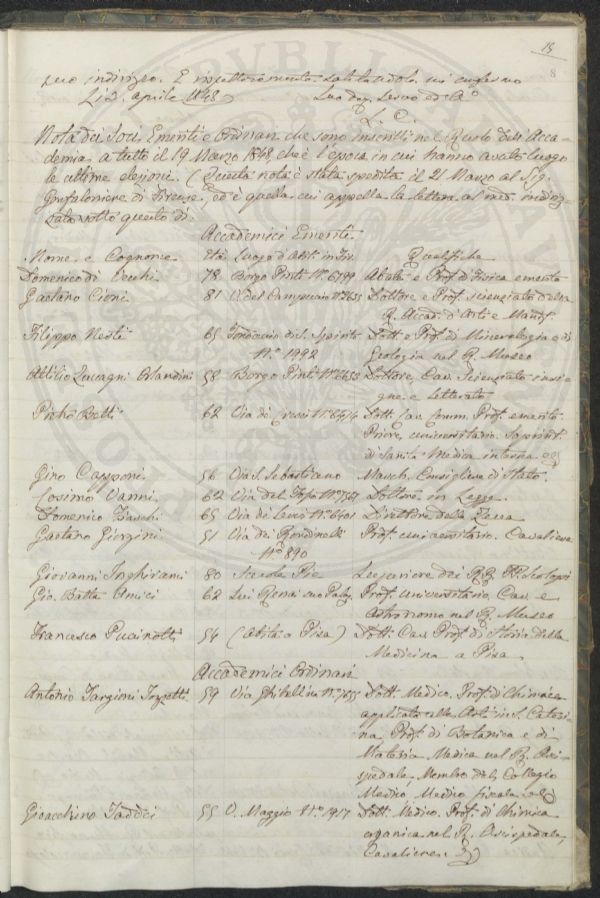 15
8
suo indirizzo. E rispettosamente salutandola mi confermo
Li 3. aprile 1848
L. C.
Nota dei Soci Emeriti e Ordinari che sono inscritti nel Ruolo dell' Acca-
demia a tutto il 19 Marzo 1848 che è l'epoca in cui hanno avuto luogo
le ultime elezioni. (Questa nota è stata spedita il 21 Marzo al Sig.
Gonfaloniere di Firenze, ed è quella cui appella la lettera al med. indiriz-
zata sotto questo dì.
Accademici Emeriti
Nome e Cognome Età Luogo d'abit. in Fir. Qualifiche
Domenico de' Vecchi 78 Borgo Pinti N.° 6799 Abate e Prof. di Fisica emerito
Gaetano Cioni 81 V. del Campuccio Dottore e Prof. scienziato della
R. Accad. d'Arti e Manif.
Filippo Nesti 65 Fondaccio di S. Spirito Dott. e Prof. di Mineralogia e di
N.° 1992 Geologia nel R. Museo
Attilio Zuccagni Orlandini 58 Borgo Pinti N.° Dottore, Cav. Scienziato insi-
gne e Letterato
Pietro Betti 62 Via di N.° Dott. Cav. Comm. Prof. emerito.
Priore, universitario. Soprint.
di Sanità Medica interna
Gino Capponi 56 Via S. Sebastiano March. Consigliere di Stato
Cosimo Vanni 62 Via del Fosso N.° Dottore in Legge.
Domenico 65 Via di N.° 6401 Direttore della Zecca
Gaetano Giorgini 51 Via dei Rondinelli Prof. universitario. Cavaliere
N.° 890
Giovanni Inghirami 80 Scuole Pie dei RR. PP. Scolopi
Gio. Batta Amici 62 Lui Renai suo Palaz. Prof. universitario, Cav. e
Astronomo nel R. Museo
Francesco Puccinotti 54 (Abita a Pisa) Dott. Cav. Prof. di Storia della
Medicina a Pisa
Accademici Ordinari
Antonio Targioni Tozzetti 59 Via Ghibellina N.° Dott. Medico. Prof. di Chimica
applicata alle Arti in S. Cateri-
na, Prof. di Botanica e di
Materia Medica nel R. Arci-
spedale, Membro del Collegio
Medico, Medico fiscale
Gioacchino Taddei 55 V. Maggio N.° 1917 Dott. Medico. Prof. di Chimica
organica nel R. Arcispedale,
Cavaliere.